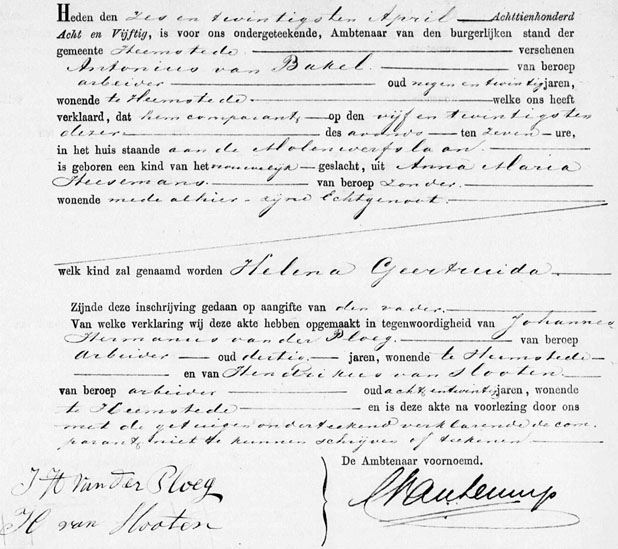 Heden den zes en twintigsten April Achttienhonderd
Acht en Vijftig, is voor ons ondergeteekende, Ambtenaar van den burgerlijken stand der
gemeente Heemstede verschenen
Antonius van Bakel van beroep
arbeider oud negen en twintig jaren,
wonende te Heemstede welke ons heeft
verklaard, dat hem comparant, op den vijf en twintigsten
dezer des avonds ten zeven ure,
in het huis staande aan de Molenwerfslaan
is geboren een kind van het vrouwelijk geslacht, uit Anna Maria
Heesemans van beroep zonder
wonende mede alhier zijne Echtgenoot
welk kind zal genaamd worden Helena Geertruida
Zijnde deze inschrijving gedaan op aangifte van den vader
Van welke verklaring wij deze akte hebben opgemaakt in tegenwoordigheid van Johannes
Hermanus van der Ploeg van beroep
arbeider oud dertig jaren, wonende te Heemstede
en van Hendrikus van Slooten
van beroep arbeider oud acht en twintig jaren, wonende
te Heemstede en is deze akte na voorlezing door ons
met de getuigen onderteekend verklarende de com-
parant niet te kunnen schrijven of teekenen
De Ambtenaar voornoemd.
J H van der Ploeg
H van Slooten